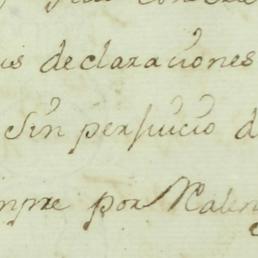 us declaraciones
Sin perjuicio d
mpre por Valen